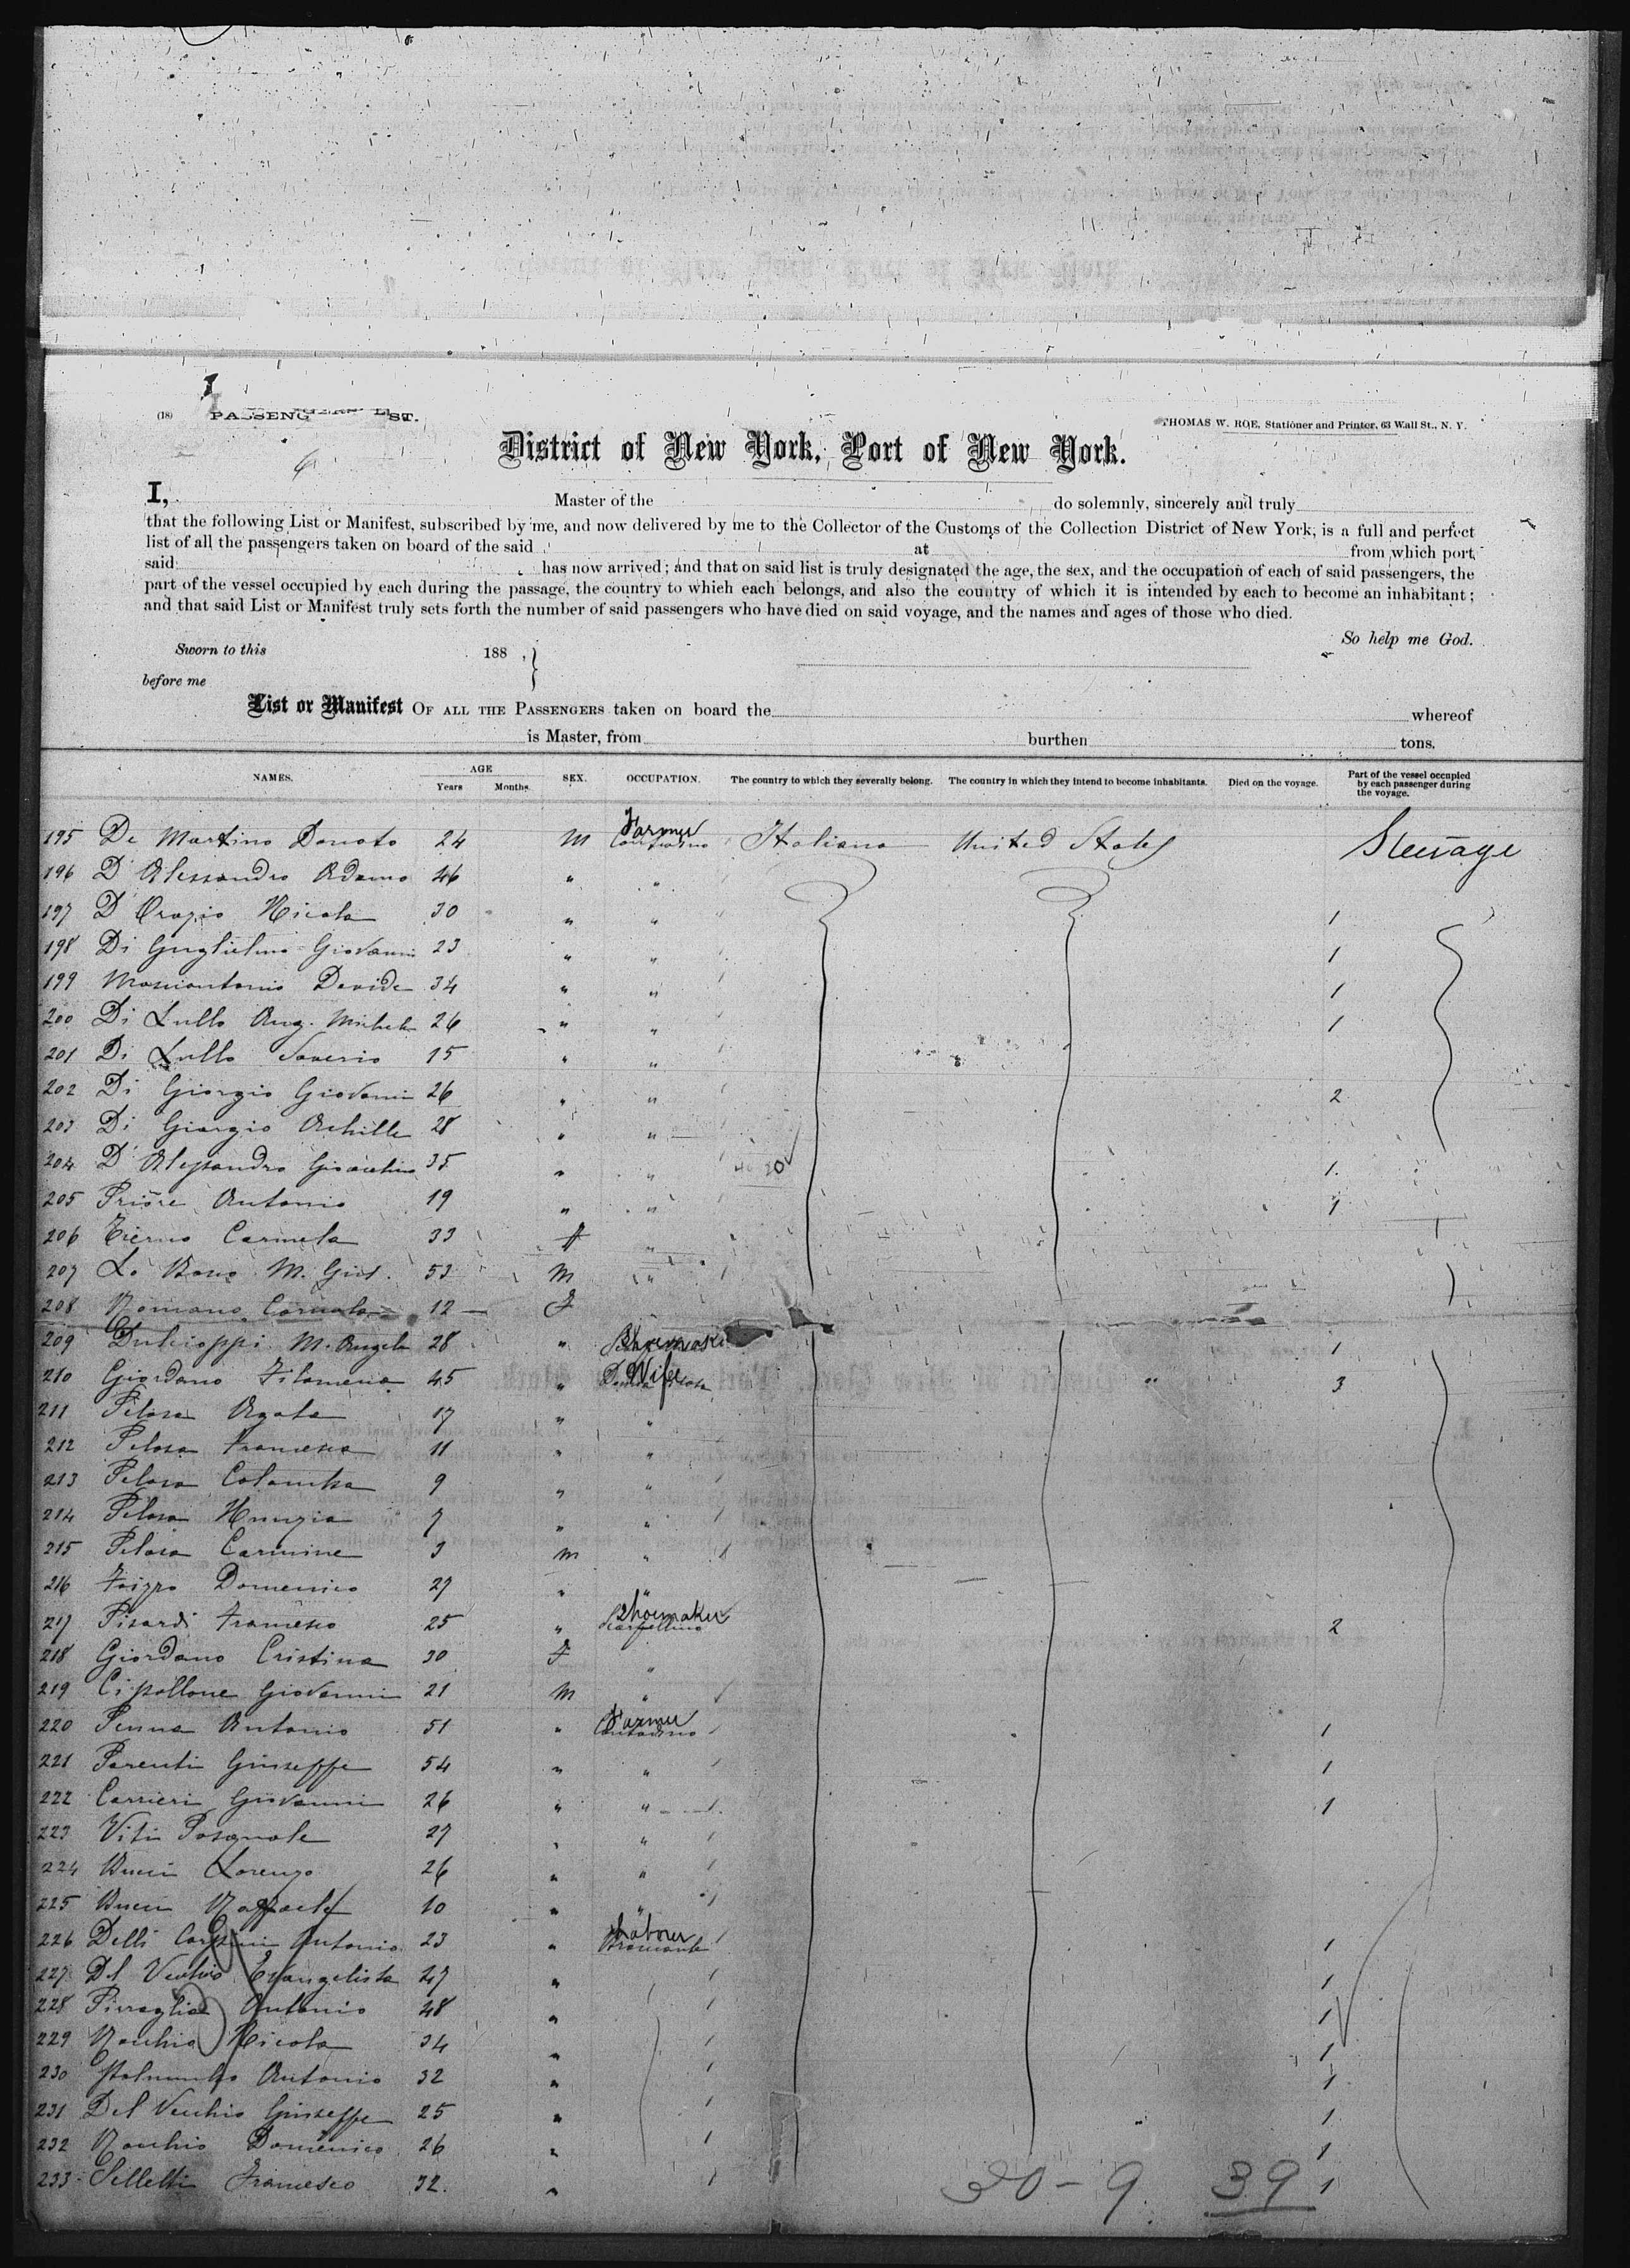 (18) PASSENG ST.
THOMAS W. ROE, Stationer and Printer, 63 Wall St., N. Y.
District of New York, Port of New York.
I, Master of the do solemnly, sincerely and truly
that the following List or Manifest, subscribed by me, and now delivered by me to the Collector of the Customs of the Collection District of New York, is a full and perfect
list of all the passengers taken on board of the said at from which port
said has now arrived; and that on said list is truly designated the age, the sex, and the occupation of each of said passengers, the
part of the vessel occupied by each during the passage, the country to which each belongs, and also the country of which it is intended by each to become an inhabitant;
and that said List or Manifest truly sets forth the number of said passengers who have died on said voyage, and the names and ages of those who died.
So help me God.
Sworn to this 188 ,
before me
List or Manifest OF ALL THE PASSENGERS taken on board the whereof
is Master, from burthen tons.
NAMES. AGE Years Months. SEX. OCCUPATION. The country to which they severally belong. The country in which they intend to become inhabitants. Died on the voyage. Part of the vessel occupied by each passenger during the voyage.
195 De Martino Donato 24 M Farmer Contadino Italiana United States Steerage
196 D'Alessandro Adamo 46 " "
197 D'Orazio Nicola 30 " " 1
198 Di Guglielmo Giovanni 23 " " 1
199 Masciantonio Davide 34 " " 1
200 Di Lullo Ang. Michele 26 " " 1
201 Di Lullo Saverio 15 " "
202 Di Giorgio Giovanni 26 " " 2
203 Di Giorgio Achille 28 " "
204 D'Alessandro Gioacchino 35 " " 1
205 Priore Antonio 19 " " 1
206 Tierno Carmela 33 F "
207 Lo Bosco M. Giov. 53 M "
208 Romano Carmela 12 F
209 M. Angela 28 " 1
210 Giordano Filomena 45 " Wife 3
211 Pelosa Agata 17 " "
212 Pelosa Francesca 11 " "
213 Pelosa Colomba 9 " "
214 Pelosa Nunzia 7 " "
215 Pelosa Carmine 3 M "
216 Domenico 27 " "
217 Pisardi Francesco 25 " Shoemaker Scarpellino 2
218 Giordano Cristina 30 F "
219 Cipollone Giovanni 21 M "
220 Penna Antonio 51 " Farmer Contadino 1
221 Parenti Giuseppe 54 " " 1
222 Carrieri Giovanni 26 " " 1
223 Viti Pasquale 27 " "
224 Bucci Lorenzo 26 " "
225 Bucci Raffaele 10 " "
226 Delli Antonio 23 " Labourer Bracciante 1
227 Del Vecchio Evangelista 27 " 1
228 Antonio 48 " 1
229 Nicola 34 " 1
230 Palumbo Antonio 32 " 1
231 Del Vecchio Giuseppe 25 " 1
232 Domenico 26 " 1
233 Francesco 32 " 1
30 - 9 39